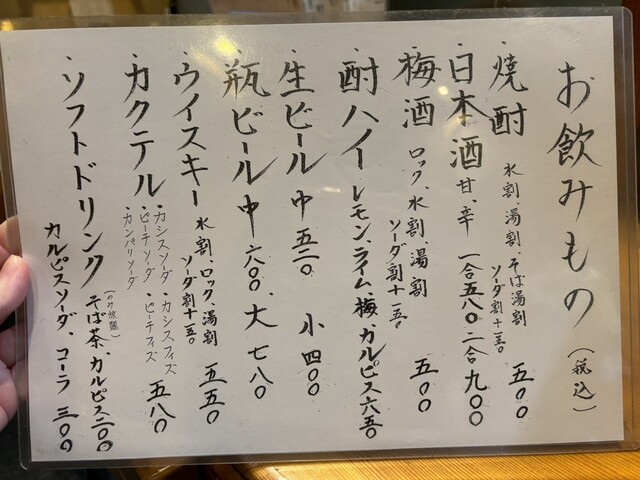 お飲みもの（税込）
焼酎 水割、湯割、そば湯割 五〇〇
ソーダ割＋五〇
日本酒 甘、辛 一合五八〇 二合九〇〇
梅酒 ロック、水割、湯割 五〇〇
ソーダ割＋五〇
酎ハイ レモン、ライム、梅、カルピス六五〇
・生ビール 中 五二〇 小 四〇〇
瓶ビール 中 六〇〇、大 七八〇
・ウイスキー 水割、ロック、湯割 五五〇
ソーダ割＋五〇
カクテル ・カシスソーダ ・カシスフィズ 五八〇
・ピーチソーダ ・ピーチフィズ
・カンパリソーダ
・ソフトドリンク （のみ放題）そば茶、カルピス二〇〇
カルピスソーダ、コーラ 三〇〇